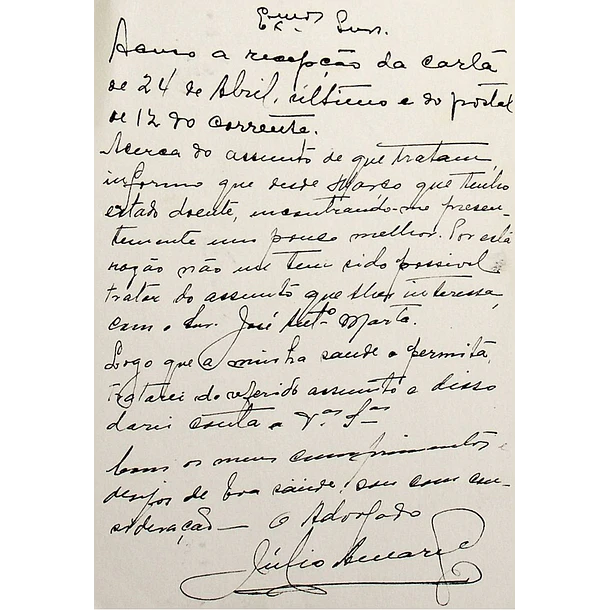 Exmos Snrs.
Acuso a recepção da carta
de 24 de Abril, ultimo e do postal
de 12 do corrente.
Acerca do assunto de que tratam,
informo que desde Março que tenho
estado doente, encontrando-me presen-
temente um pouco melhor. Por esta
razão não me tem sido possivel
tratar do assunto que lhes interessa,
com o Snr. José Antº Marta.
Logo que a minha saude o permita,
tratarei do referido assunto e disso
darei conta a V.as S.as
Com os meus cumprimentos e
desejos de boa saúde, sou com con-
sideração — O Advogado
Júlio